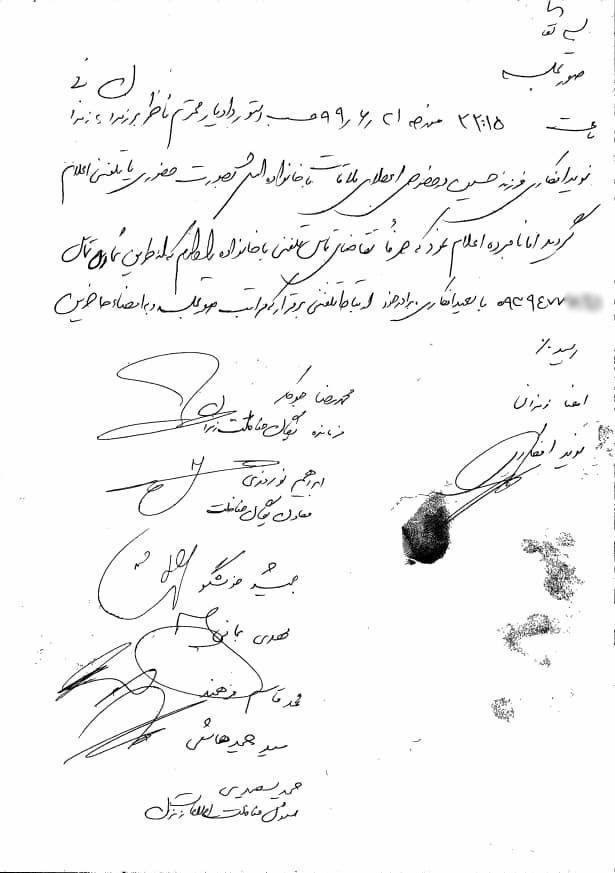 بسمه تعالی
صورتجلسه
ساعت ۲۲:۱۵ مورخه ۹۹/۶/۲۱ حسب دستور دادیار محترم ناظر بر زندان زندانی
نوید افکاری فرزند حسین در خصوص اعطای ملاقات با خانواده اش بصورت حضوری یا تلفنی اعلام
گردید اما نامبرده اعلام نمود که صرفاً تقاضای تماس تلفنی با خانواده را دارم که از طریق شماره تماس
۰۹۳۹۴۷۷ با سعید افکاری برادر خود ارتباط تلفنی برقرار که مراتب صورتجلسه و به امضاء حاضرین
رسید٪
امضا زندانی
نوید افکاری
محمدرضا جوکار
فرمانده یگان حفاظت زندان
ابراهیم نوروزی
معاون یگان حفاظت
جمشید خوشگو
مهدی
محمد قاسم فرهمند
سید حمید هاشمی
حمید سعیدی
مسئول حفاظت اطلاعات زندان